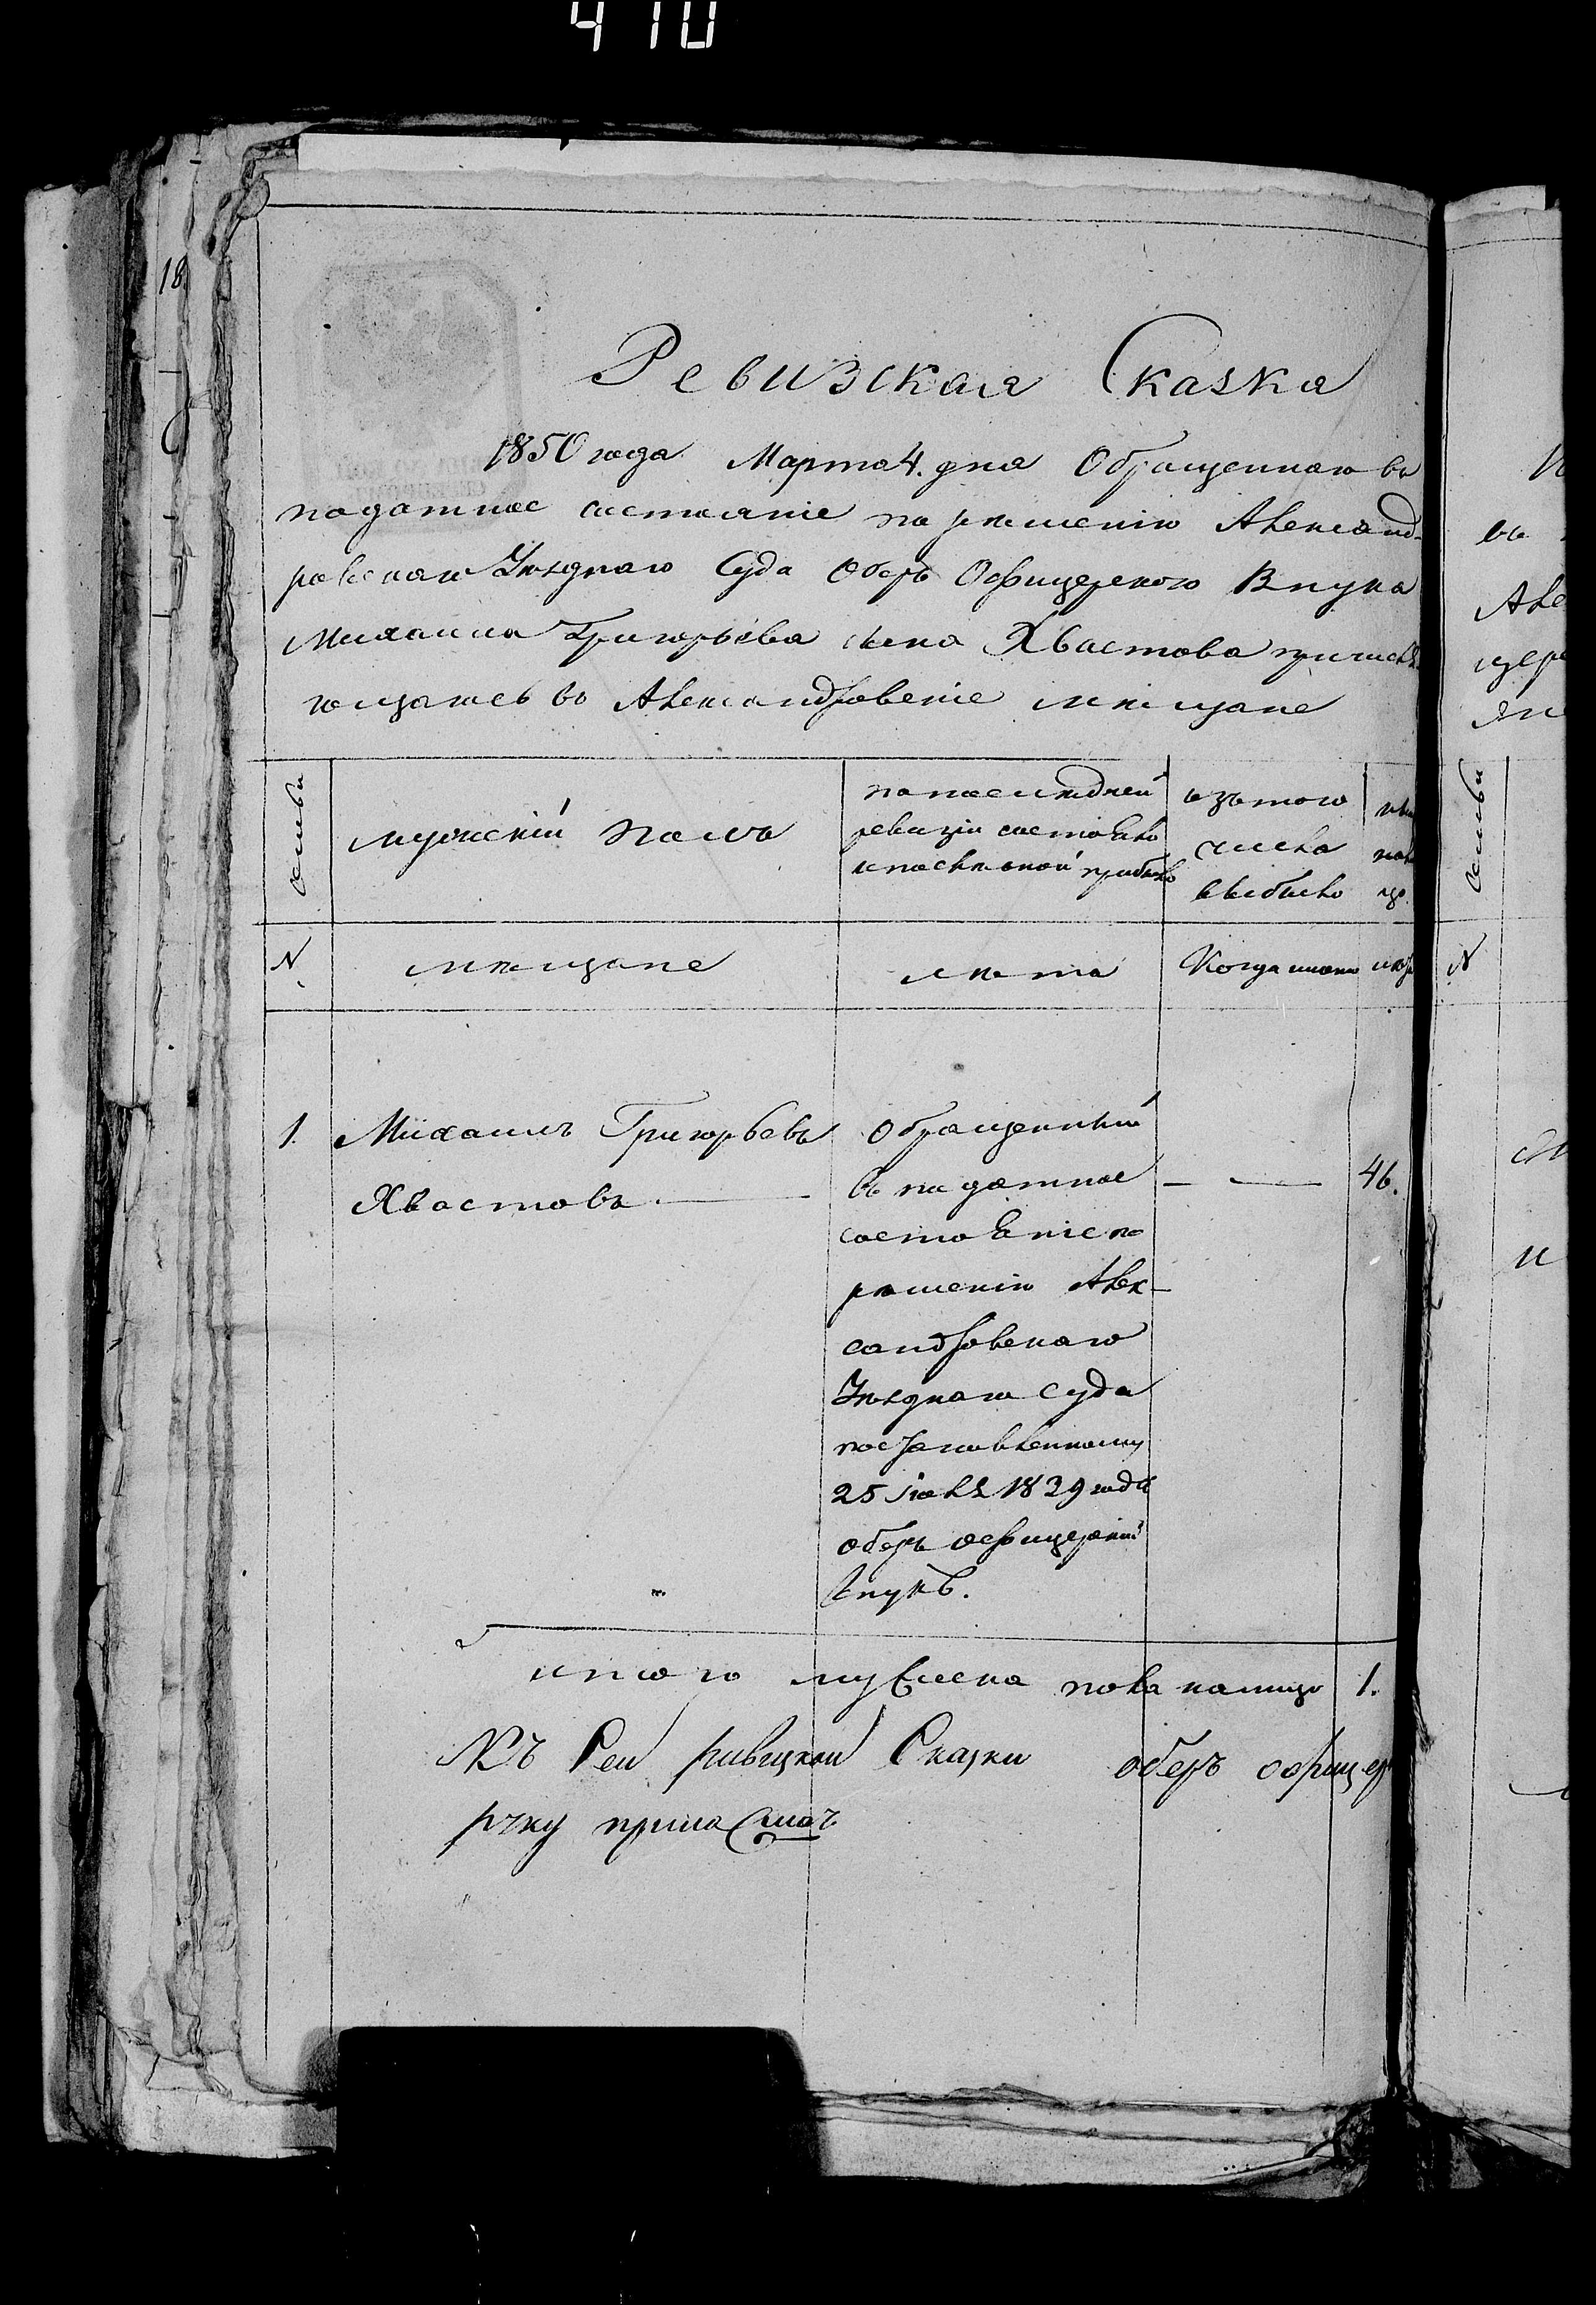 410
18
Ревизская Сказка
1850 года Марта 4. дня Обращеннаго въ
податное состояние по решению Александ-
ровскаго Уезднаго Суда Оберъ Офицерского Внука
Михаила Григорьева сына Хвастова
въ Александровские мещане
семьи
мужский полъ
по последней
ревизии состояло
и после оной прибыло
изъ того
числа
выбыло
N
мещане
лета
Когда именно
1.
Михаилъ Григорьевъ
Хвастовъ
Обращенный
въ податное
состояние по
решению Алек-
сандровскаго
Уезднаго Суда
постановленному
25 июля 1839 года
оберъ офицерский
внукъ.
46.
итого мужеска пола налицо 1.
Къ Сей ривизкой Сказки оберъ офицер
руку приложилъ
семьи
N